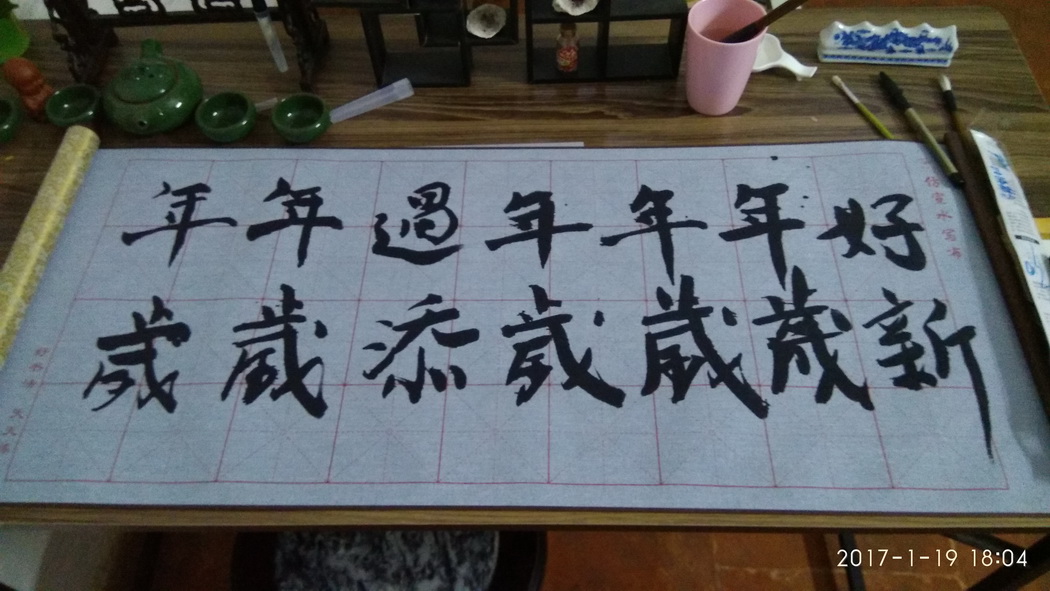 年年過年年年好
歲歲添歲歲歲新
仿宣水写布
2017-1-19 18:04